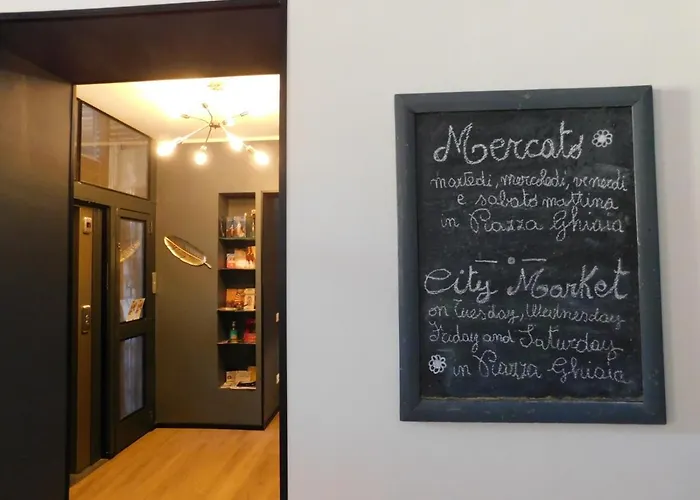 Mercato
martedì, mercoledì, venerdì
e sabato mattina
in Piazza Ghiaia
City Market
on Tuesday, Wednesday
Friday and Saturday
in Piazza Ghiaia